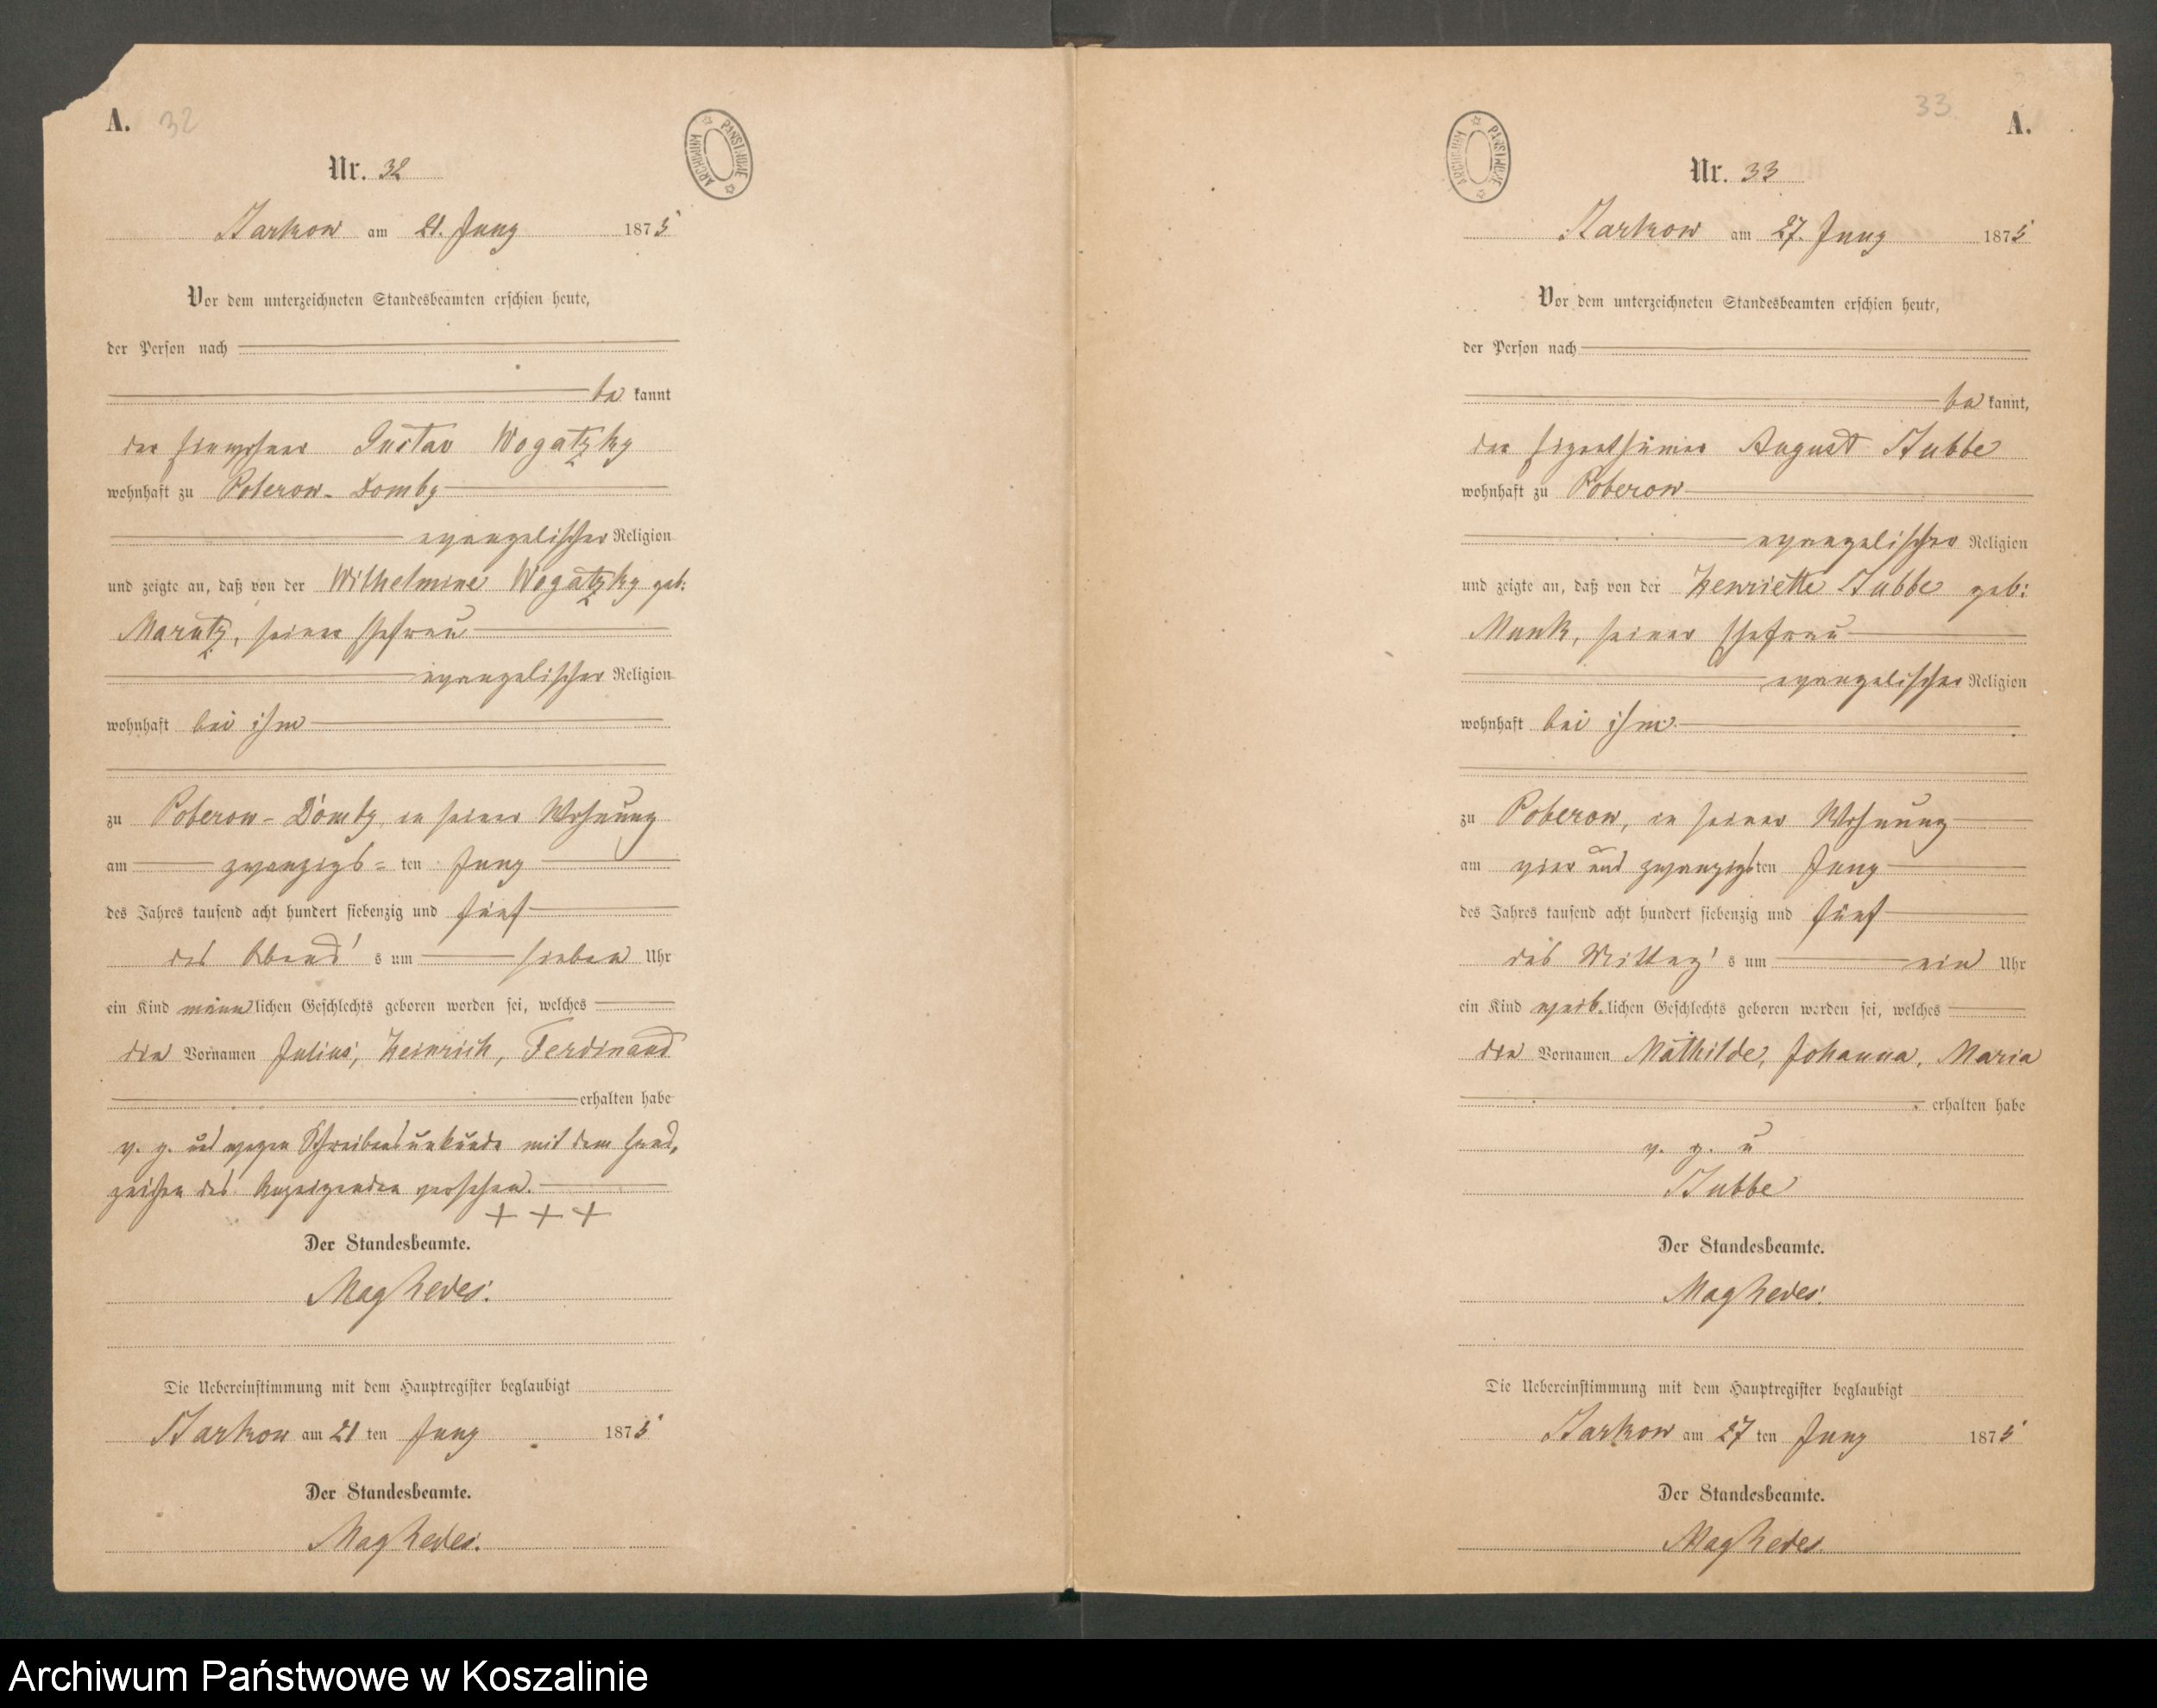 A. 32
ARCHIWUM PAŃSTWOWE
Nr. 32
Starkow am 21. Juny 1875
Vor dem unterzeichneten Standesbeamten erschien heute,
der Person nach
be kannt
der Einwohner Gustav Wogatzky
wohnhaft zu Poberow-Domby
evangelischer Religion
und zeigte an, daß von der Wilhelmine Wogatzky geb:
Marutz, seiner Ehefrau
evangelischer Religion
wohnhaft bei ihm
zu Poberow-Domby, in seiner Wohnung
am zwanzigs= ten Juny
des Jahres tausend acht hundert siebenzig und fünf
des Abend's um sieben Uhr
ein Kind männlichen Geschlechts geboren worden sei, welches
die Vornamen Julius, Heinrich, Ferdinand
erhalten habe
v. g. und wegen Schreibensunkunde mit dem Hand-
zeichen des Anzeigenden versehen.
+ + +
Der Standesbeamte.
Die Uebereinstimmung mit dem Hauptregister beglaubigt
Starkow am 21 ten Juny 1875
Der Standesbeamte.
33 A.
ARCHIWUM PAŃSTWOWE
Nr. 33
Starkow am 27. Juny 1875
Vor dem unterzeichneten Standesbeamten erschien heute,
der Person nach
be kannt,
der Eigenthümer August Stubbe
wohnhaft zu Poberow
evangelischer Religion
und zeigte an, daß von der Henriette Stubbe geb:
Munk, seiner Ehefrau
evangelischer Religion
wohnhaft bei ihm
zu Poberow, in seiner Wohnung
am vier und zwanzigsten Juny
des Jahres tausend acht hundert siebenzig und fünf
des Mittag's um ein Uhr
ein Kind weib.lichen Geschlechts geboren worden sei, welches
die Vornamen Mathilde, Johanna, Maria
erhalten habe
v. g. u
Stubbe
Der Standesbeamte.
Die Uebereinstimmung mit dem Hauptregister beglaubigt
Starkow am 27 ten Juny 1875
Der Standesbeamte.
Archiwum Państwowe w Koszalinie